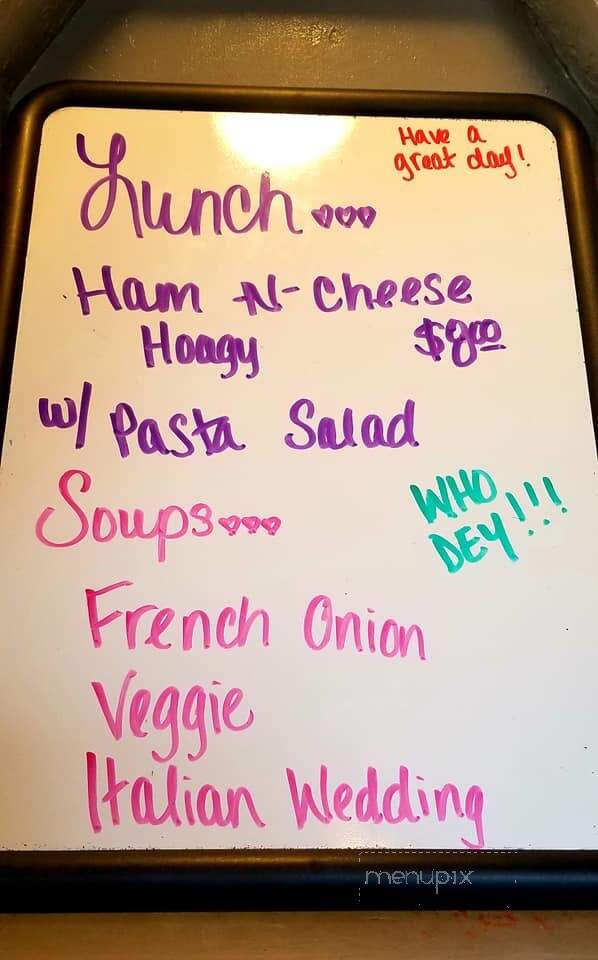 Have a
great day!
Lunch...
Ham -N- Cheese
Hoagy $8.00
w/ Pasta Salad
Soups...
WHO
DEY!!!
French Onion
Veggie
Italian Wedding
menupix